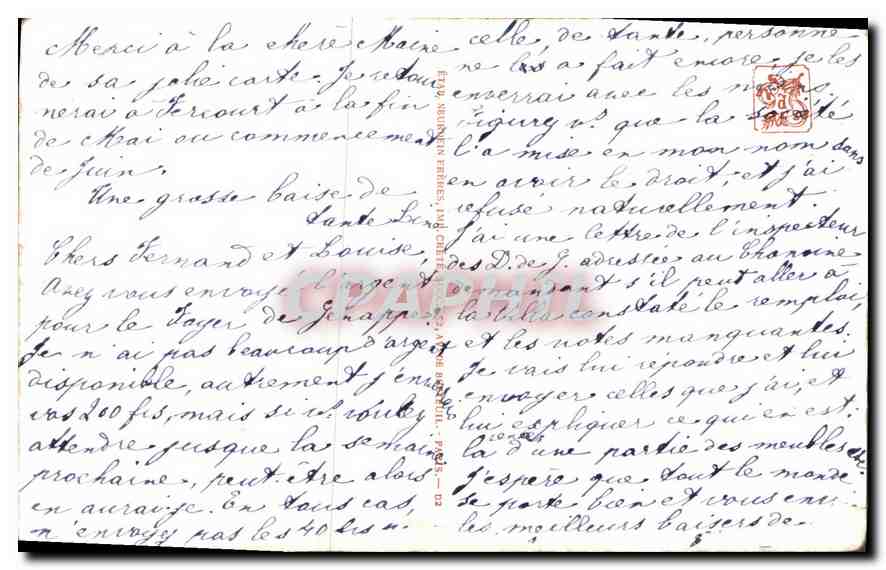 Merci à la chère Maine
de sa jolie carte. Je retour
nerai à Fercourt à la fin
de Mai ou commencement
de Juin.
Une grosse baise de
tante Lina
Chers Fernand et Louise,
Avez vous envoyé l'argent
pour le Foyer de Genappe
Je n'ai pas beaucoup d'argent
disponible, autrement j'enver
vos 200 frs, mais si vs voulez
attendre jusque la semaine
prochaine, peut-être alors
en aurai-je. En tous cas,
n'envoyez pas les 40 frs
celle de tante, personne
ne les a fait encore, je les
enverrai avec les
Figurez vs que la société
l'a mise en mon nom sans
en avoir le droit, et j'ai
refusé naturellement.
J'ai une lettre de l'inspecteur
des D. de G. adressée au Chanoine
demandant s'il peut aller à
constaté le remploi,
et les notes manquantes.
Je vais lui répondre et lui
envoyer celles que j'ai, et
lui expliquer ce qui en est.
la d'une partie des meubles etc.
J'espère que tout le monde
se porte bien et vous envoi
les meilleurs baisers de
ÉTAB. NEURDEIN FRÈRES, IMP. CRÉTÉ, PARIS. — D2
CPAPHIL